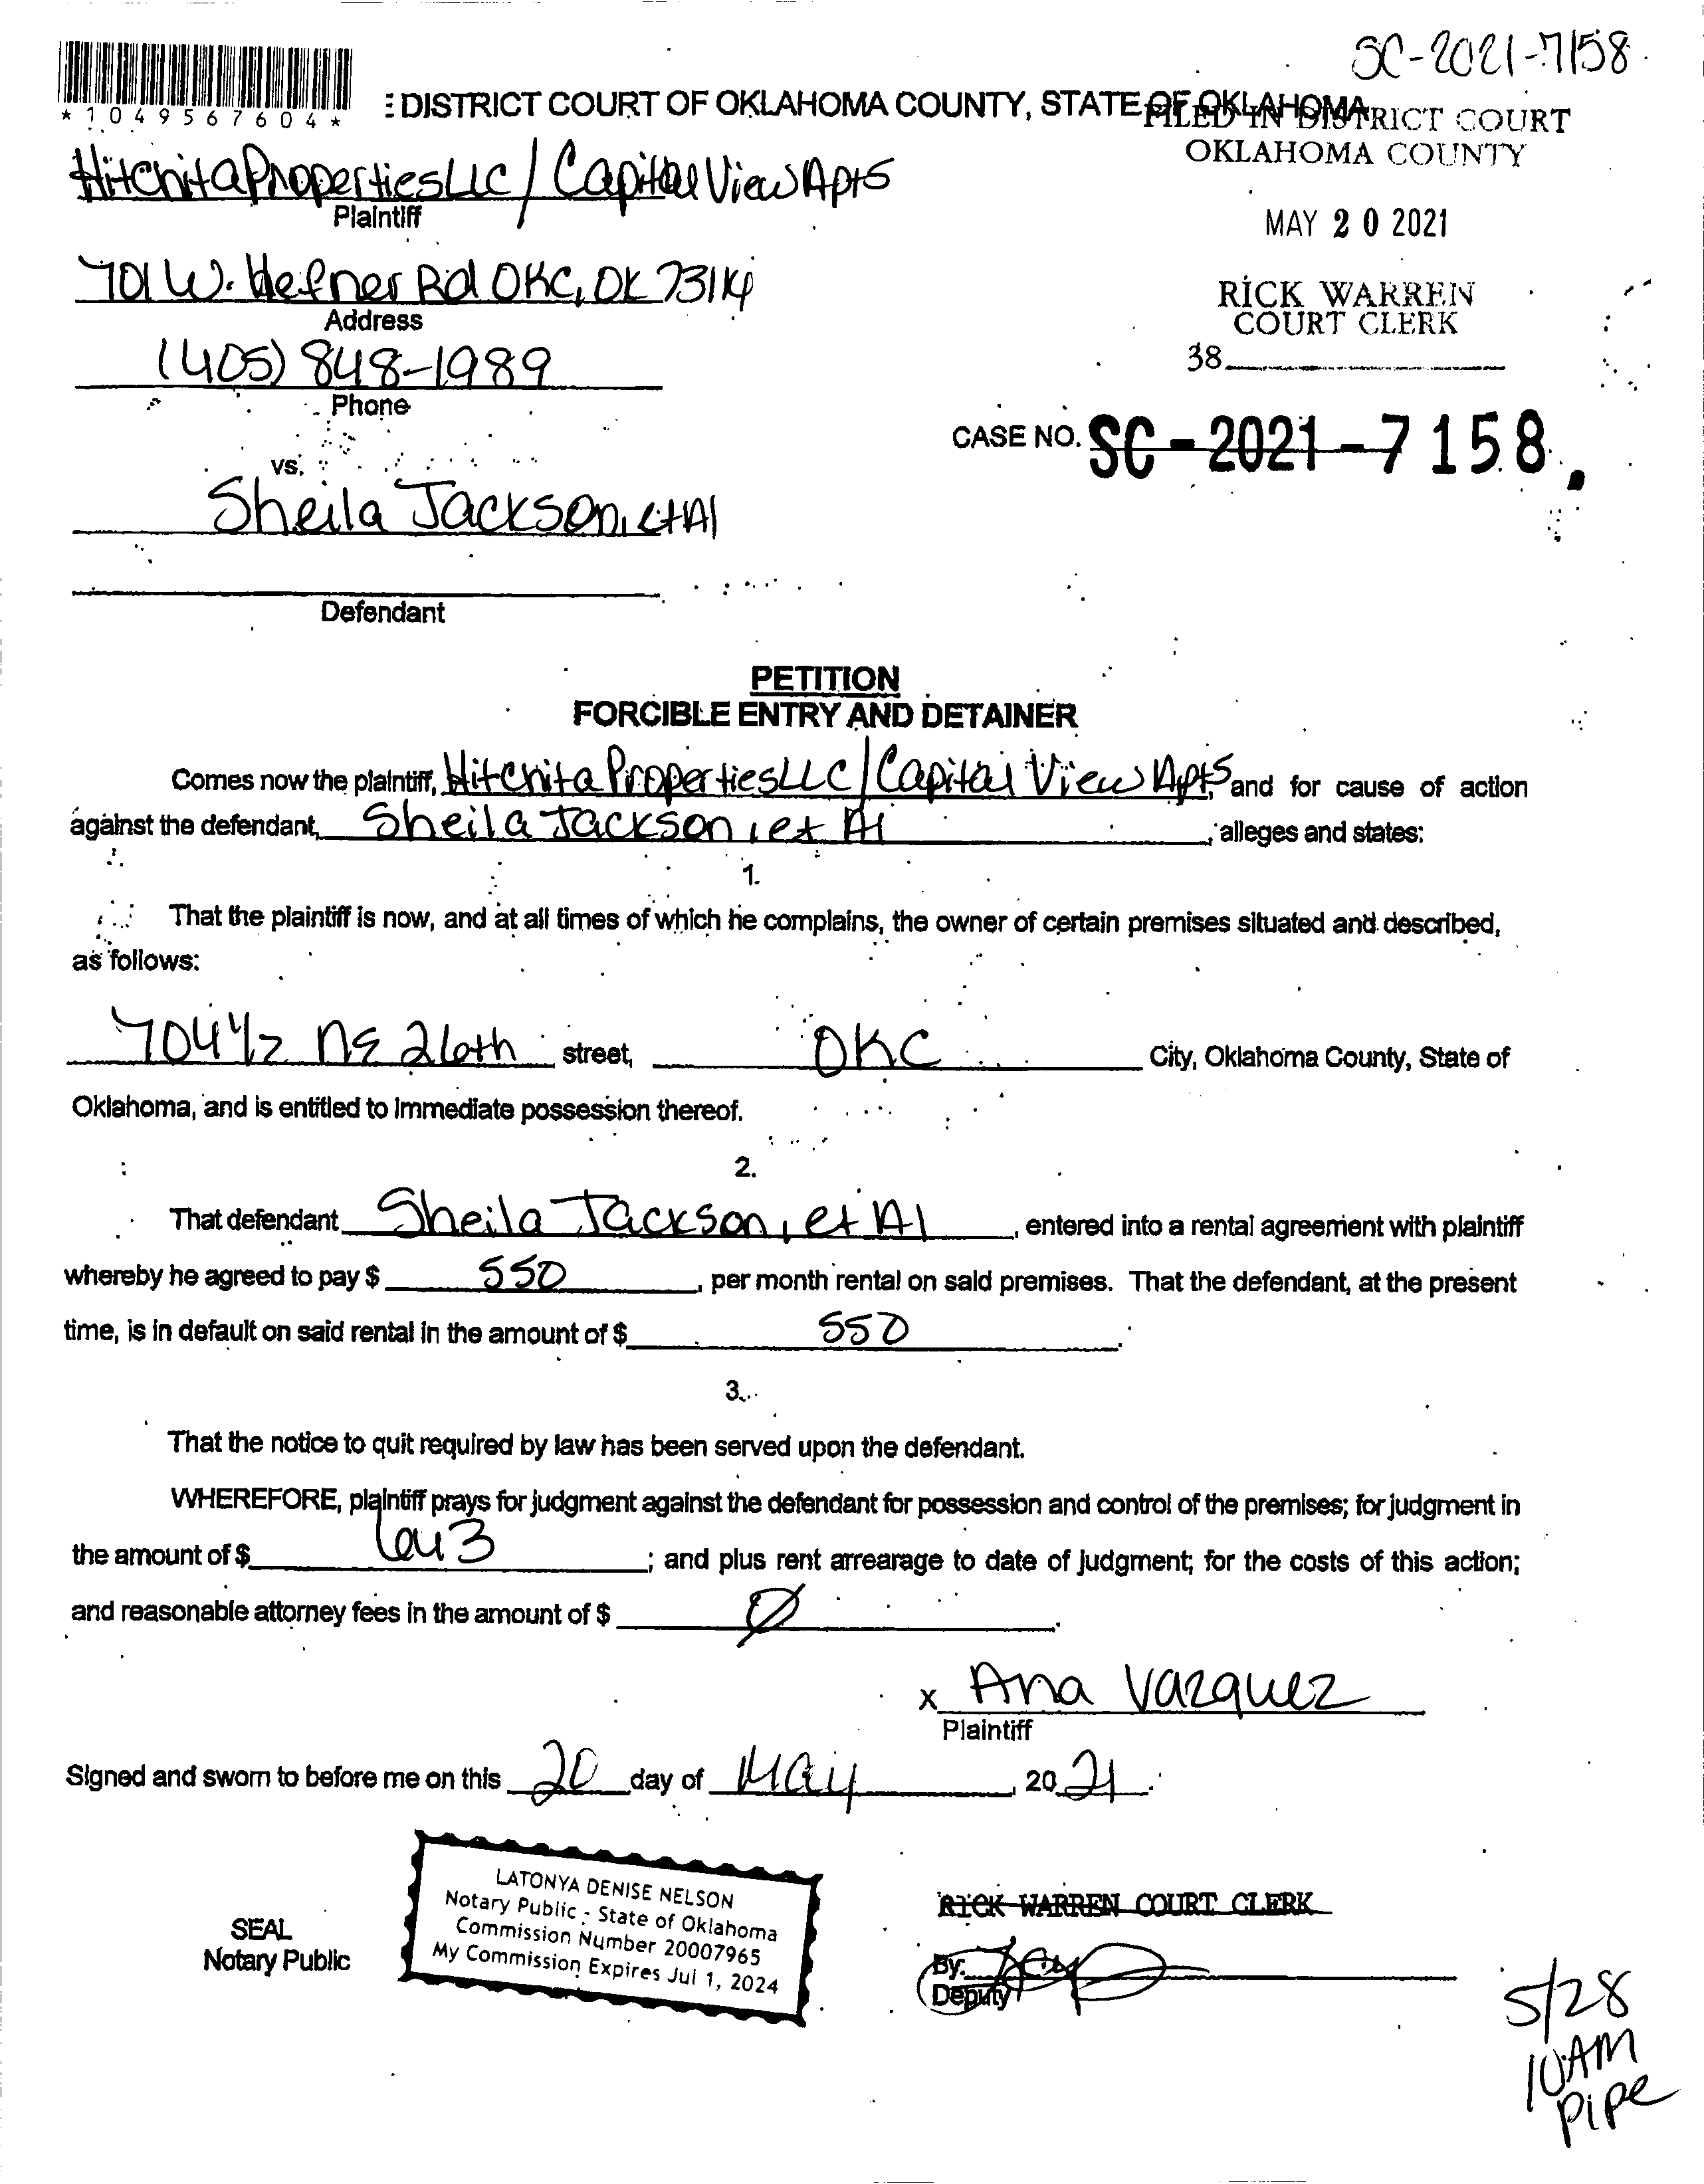 SC-2021-7158
*1049567604*
DISTRICT COURT OF OKLAHOMA COUNTY, STATE OF OKLAHOMA
FILED IN DISTRICT COURT
OKLAHOMA COUNTY
Hitchita Properties LLC / Capital View Apts
Plaintiff
MAY 20 2021
701 W. Hefner Rd OKC, OK 73114
Address
RICK WARREN
COURT CLERK
(405) 848-1989
38
Phone
CASE NO. SC-2021-7158
vs.
Sheila Jackson, et Al
Defendant
PETITION
FORCIBLE ENTRY AND DETAINER
Comes now the plaintiff, Hitchita Properties LLC / Capital View Apts, and for cause of action
against the defendant, Sheila Jackson, et Al, alleges and states:
1.
That the plaintiff is now, and at all times of which he complains, the owner of certain premises situated and described,
as follows:
704 1/2 NE 26th street, OKC City, Oklahoma County, State of
Oklahoma, and is entitled to immediate possession thereof.
2.
That defendant Sheila Jackson, et Al, entered into a rental agreement with plaintiff
whereby he agreed to pay $ 550, per month rental on said premises. That the defendant, at the present
time, is in default on said rental in the amount of $ 550.
3.
That the notice to quit required by law has been served upon the defendant.
WHEREFORE, plaintiff prays for judgment against the defendant for possession and control of the premises; for judgment in
the amount of $ 643; and plus rent arrearage to date of judgment; for the costs of this action;
and reasonable attorney fees in the amount of $ Ø.
x Ana Vazquez
Plaintiff
Signed and sworn to before me on this 20 day of May, 2021.
LATONYA DENISE NELSON
Notary Public - State of Oklahoma
Commission Number 20007965
My Commission Expires Jul 1, 2024
SEAL
Notary Public
RICK WARREN COURT CLERK
By:
Deputy
5/28
10AM
Pipe